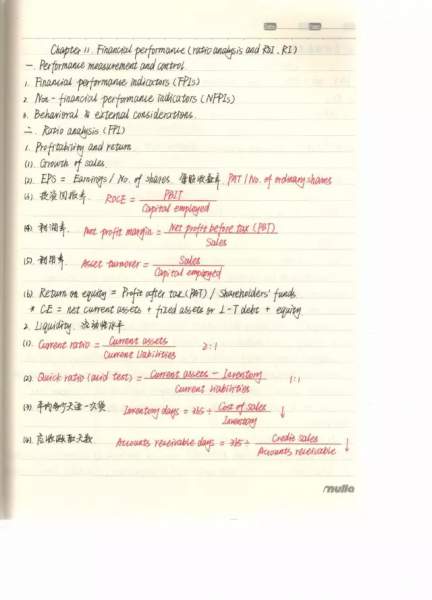 Chapter 11. Financial performance (ratio analysis and ROI, RI)
一. Performance measurement and control
1. Financial performance indicators (FPIs)
2. Non-financial performance indicators (NFPIs)
3. Behavioral & external considerations.
二. Ratio analysis (FPI)
1. Profitability and return
(1). Growth of sales.
(2). EPS = Earnings / No. of shares. 每股收益率. PAT / No. of ordinary shares
(3). 投资回报率. ROCE = PBIT / Capital employed
(4). 利润率. Net profit margin = Net profit before tax (PBT) / Sales
(5). 利用率. Asset turnover = Sales / Capital employed
(6). Return on equity = Profit after tax (PAT) / Shareholders' funds
* CE = net current assets + fixed assets or L-T debt + equity.
2. Liquidity.
(1). Current ratio = Current assets / Current liabilities 2:1
(2). Quick ratio (acid test) = Current assets - Inventory / Current liabilities 1:1
(3). 平均多少天进一次货 Inventory days = 365 ÷ Cost of sales / Inventory ↓
(4). 应收账款天数 Accounts receivable days = 365 ÷ Credit sales / Accounts receivable ↓
nulla